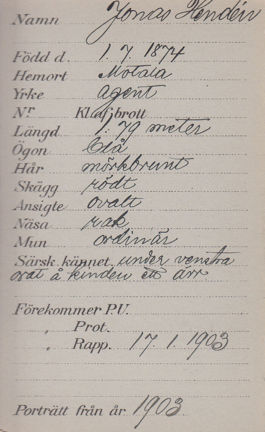 Namn Jonas Hendén
Född d. 1. 7. 1874
Hemort Motala
Yrke Agent
Nr Kl. af brott
Längd 1.79 meter
Ögon blå
Hår mörkbrunt
Skägg rödt
Ansigte ovalt
Näsa rak
Mun ordinär
Särsk. kännet. under venstra
örat å kinden ett ärr
Förekommer P.U.
" Prot.
" Rapp. 17. 1 1903
Porträtt från år 1903.